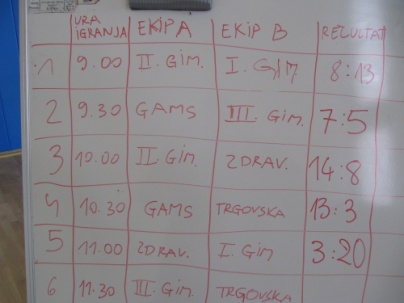 URA IGRANJA EKIPA A EKIP B REZULTAT
1 9.00 II. GIM. I. GIM 8:13
2 9.30 GAMS III. GIM. 7:5
3 10.00 II. GIM. ZDRAV. 14:8
4 10.30 GAMS TRGOVSKA 13:3
5 11.00 ZDRAV. I. GIM 3:20
6 11.30 III. GIM. TRGOVSKA